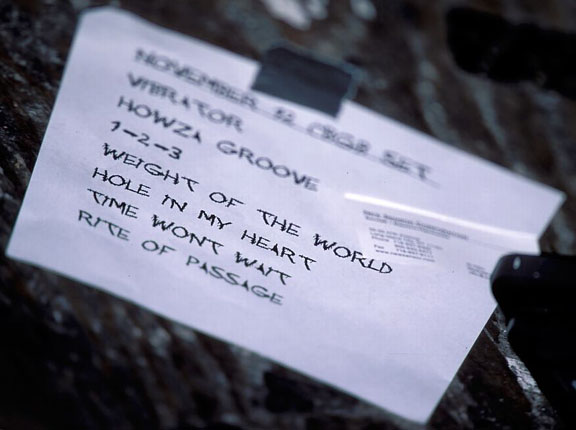 NOVEMBER 12 CBGB SET
VIBRATOR
HOWZA GROOVE
1-2-3
WEIGHT OF THE WORLD
HOLE IN MY HEART
TIME WONT WAIT
RITE OF PASSAGE